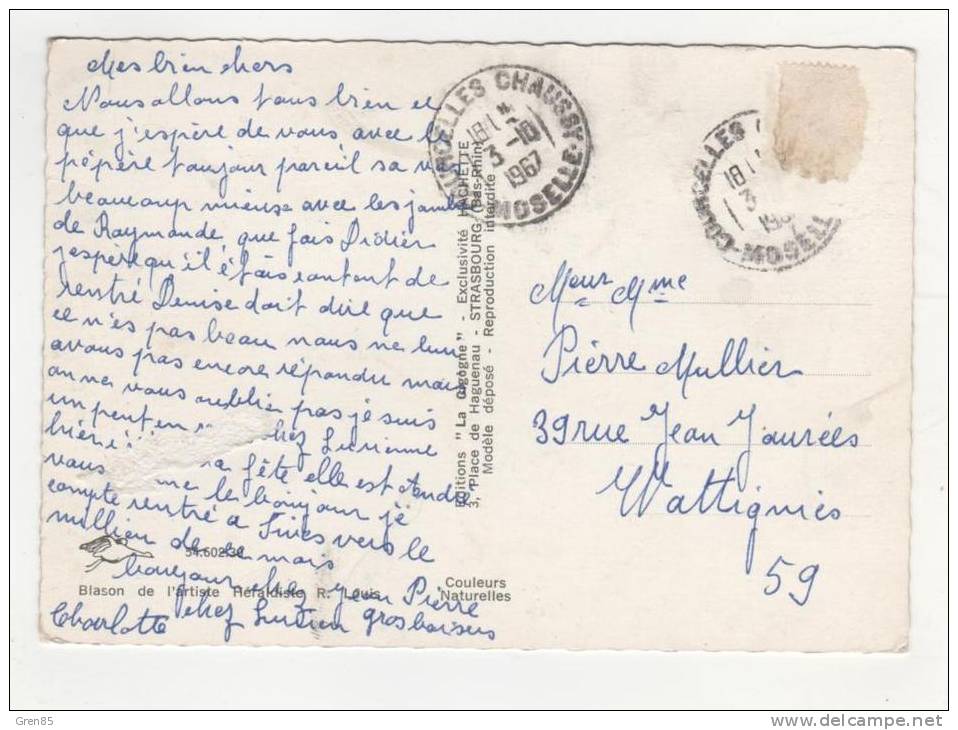 Mes bien chers
Nous allons tous bien et
que j'espère de vous avec le
pépère toujour pareil sa va
beaucoup mieux avec les jambes
de Raymonde que fais Didier
jespère qu'il étais contant de
rentré Denise doit dire que
ce n'es pas beau nous ne lui
avous pas encore répondu mais
on ne vous oublie pas je suis
un peut en chez Lucienne
hière
fête elle est
vous le bonjour je
compte rentré a vers le
millieu de ce mois
bonjour chez Jean Pierre
chez Lucien gros baisers
Charlotte
54.602.30
Blason de l'artiste Héraldiste R. Louis
Couleurs
Naturelles
Editions "La Cigogne" - Exclusivité HACHETTE
3, Place de Haguenau - STRASBOURG (Bas-Rhin)
Modèle déposé - Reproduction interdite
COURCELLES CHAUSSY
18H
3-10
1967
MOSELLE
COURCELLES
18H
3
MOSELL
Meur Mme
Pierre Mullier
39 rue Jean Jaurées
Wattignies
59
Gren85
delcampe.net